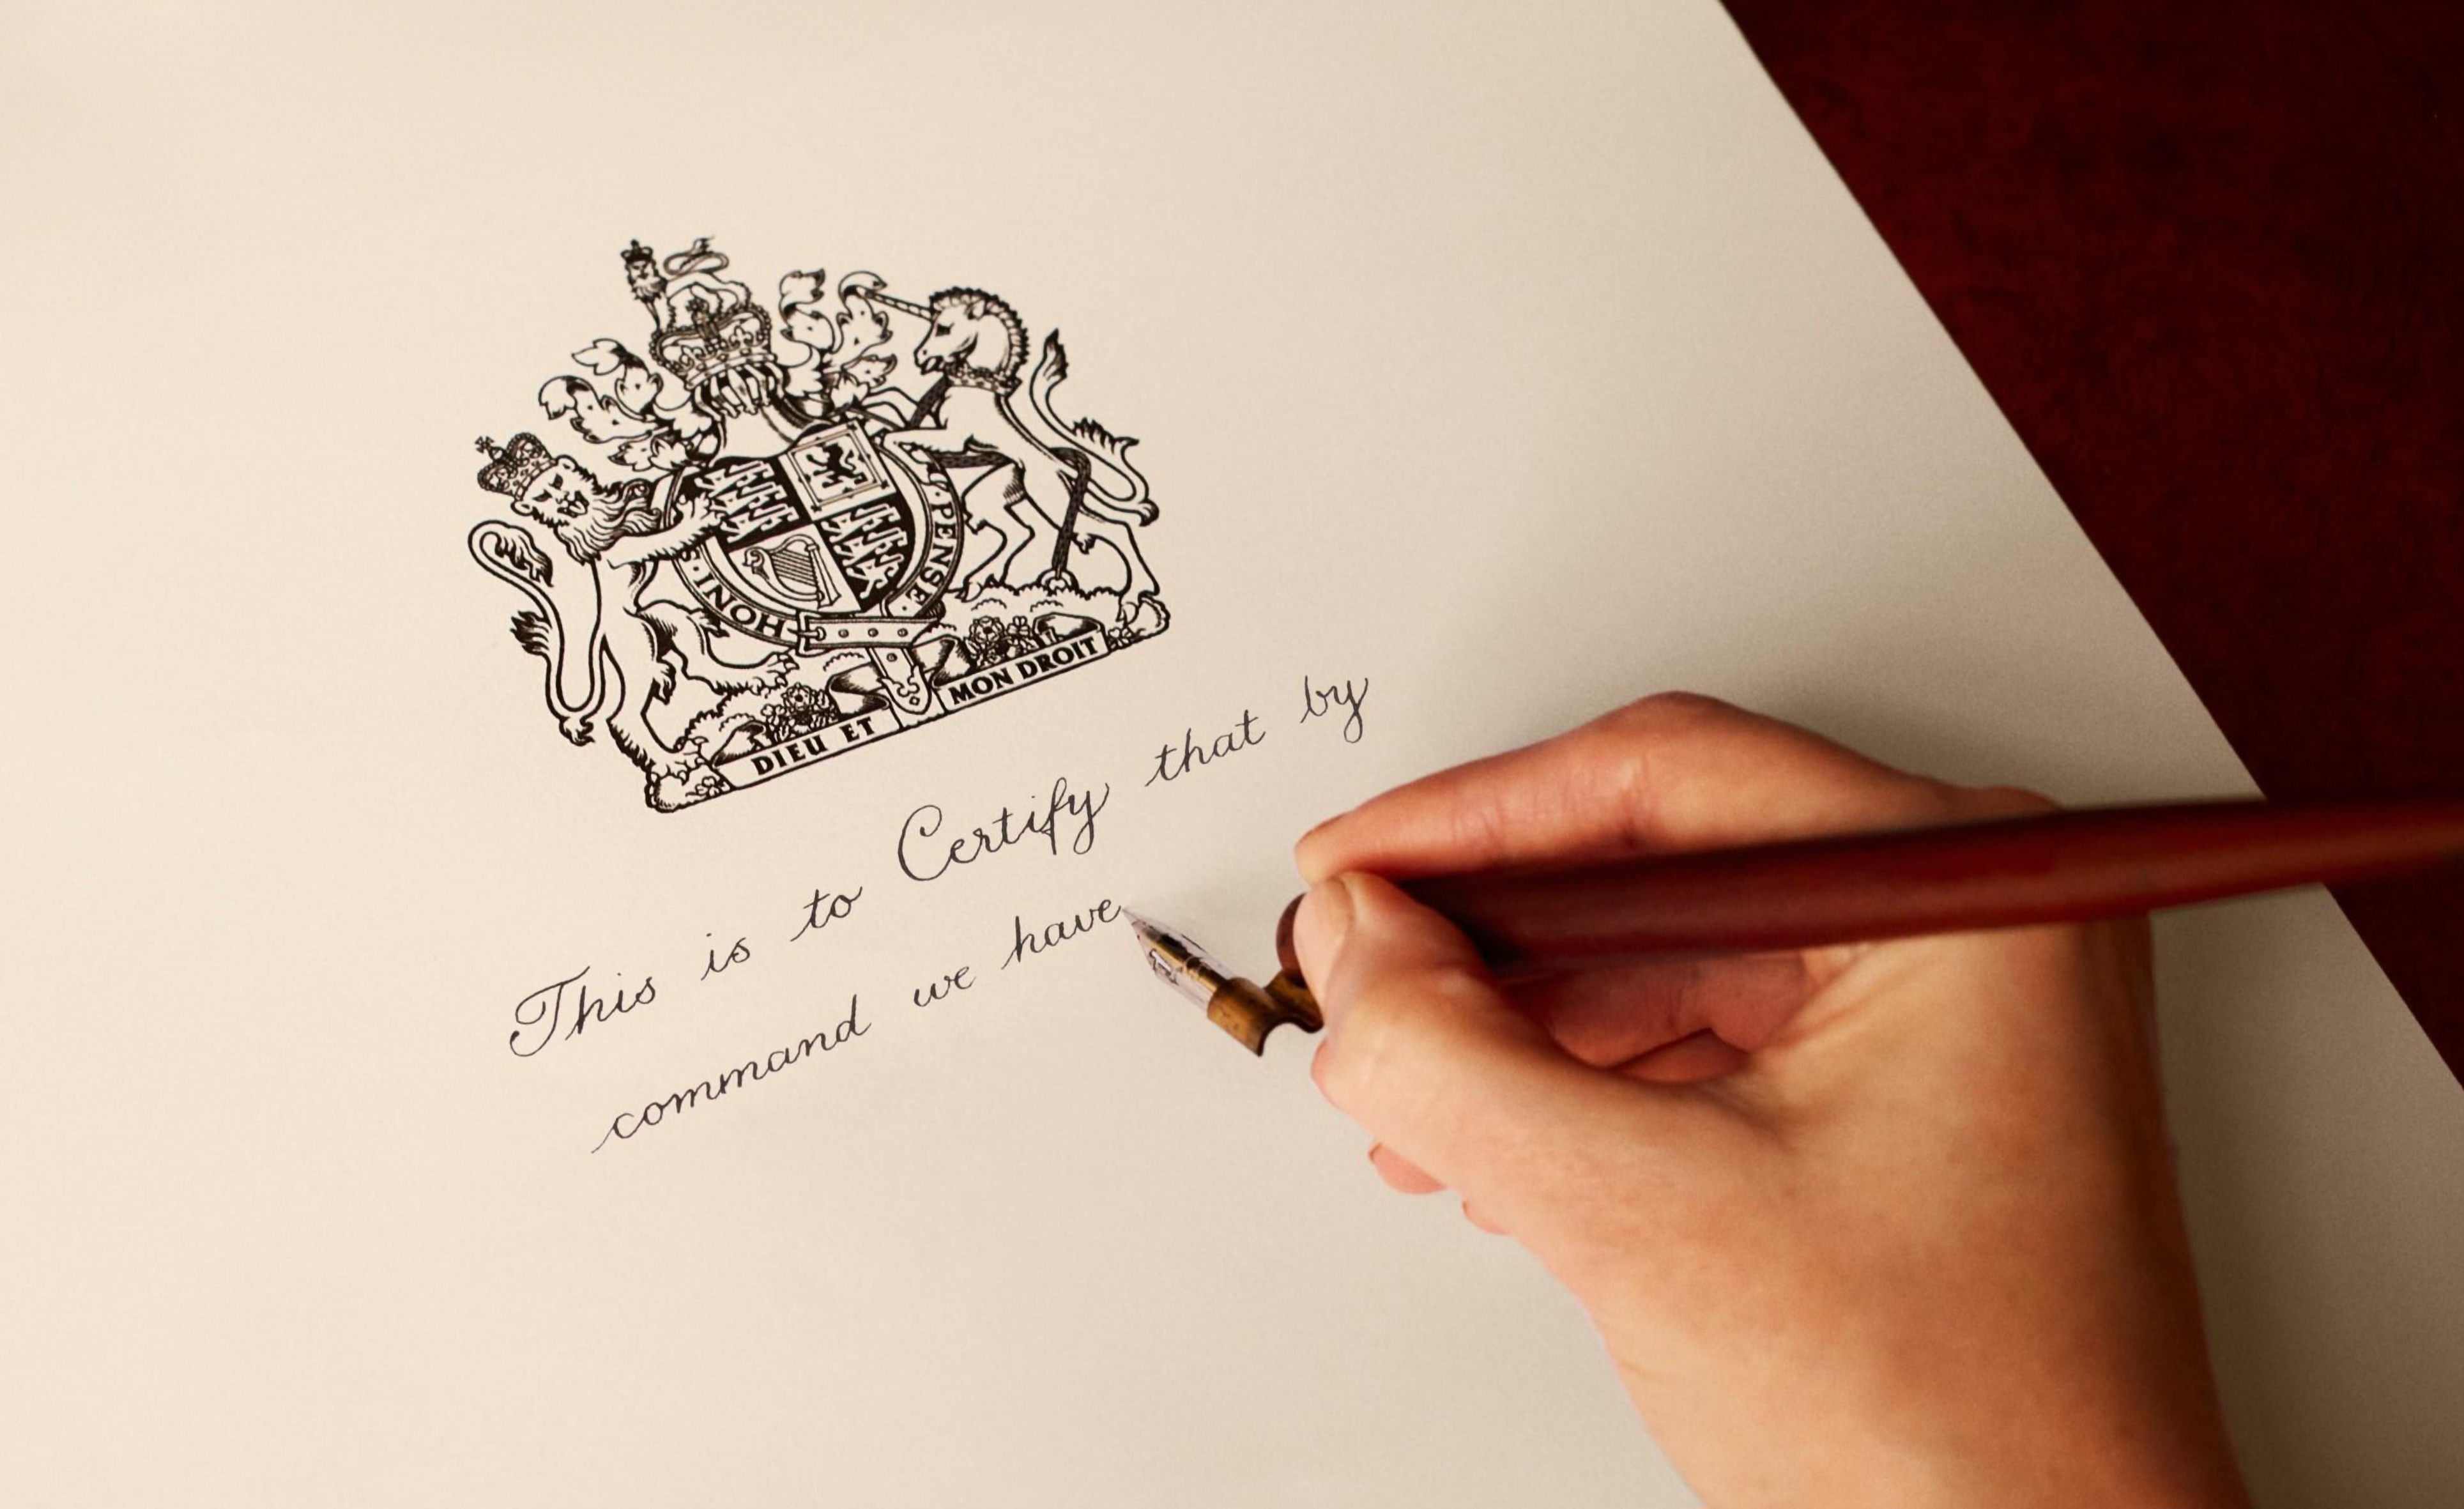 HONI · S
· PENSE ·
DIEU ET MON DROIT
This is to Certify that by
command we have